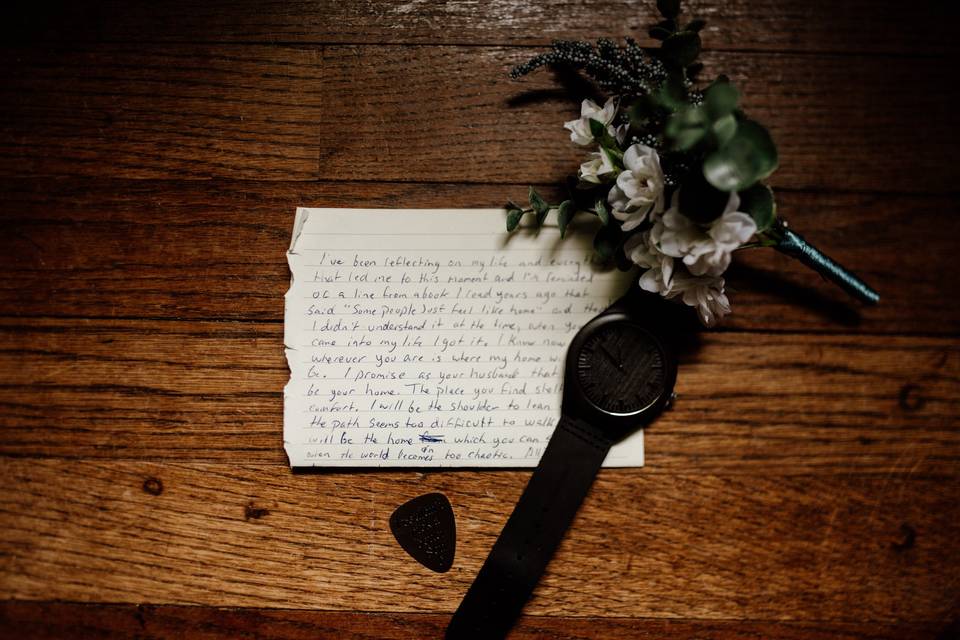 I've been reflecting on my life and everyth
that led me to this moment and I'm reminded
of a line from a book I read years ago that
said "Some people just feel like home" and tho
I didn't understand it at the time, when you
came into my life I got it. I know now
wherever you are is where my home wi
be. I promise as your husband that
be your home. The place you find shelt
comfort. I will be the shoulder to lean
the path seems too difficult to walk
will be the home on which you can
when the world becomes too chaotic.